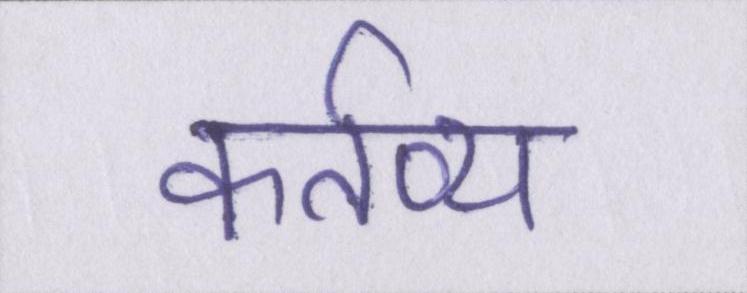 कर्तव्य